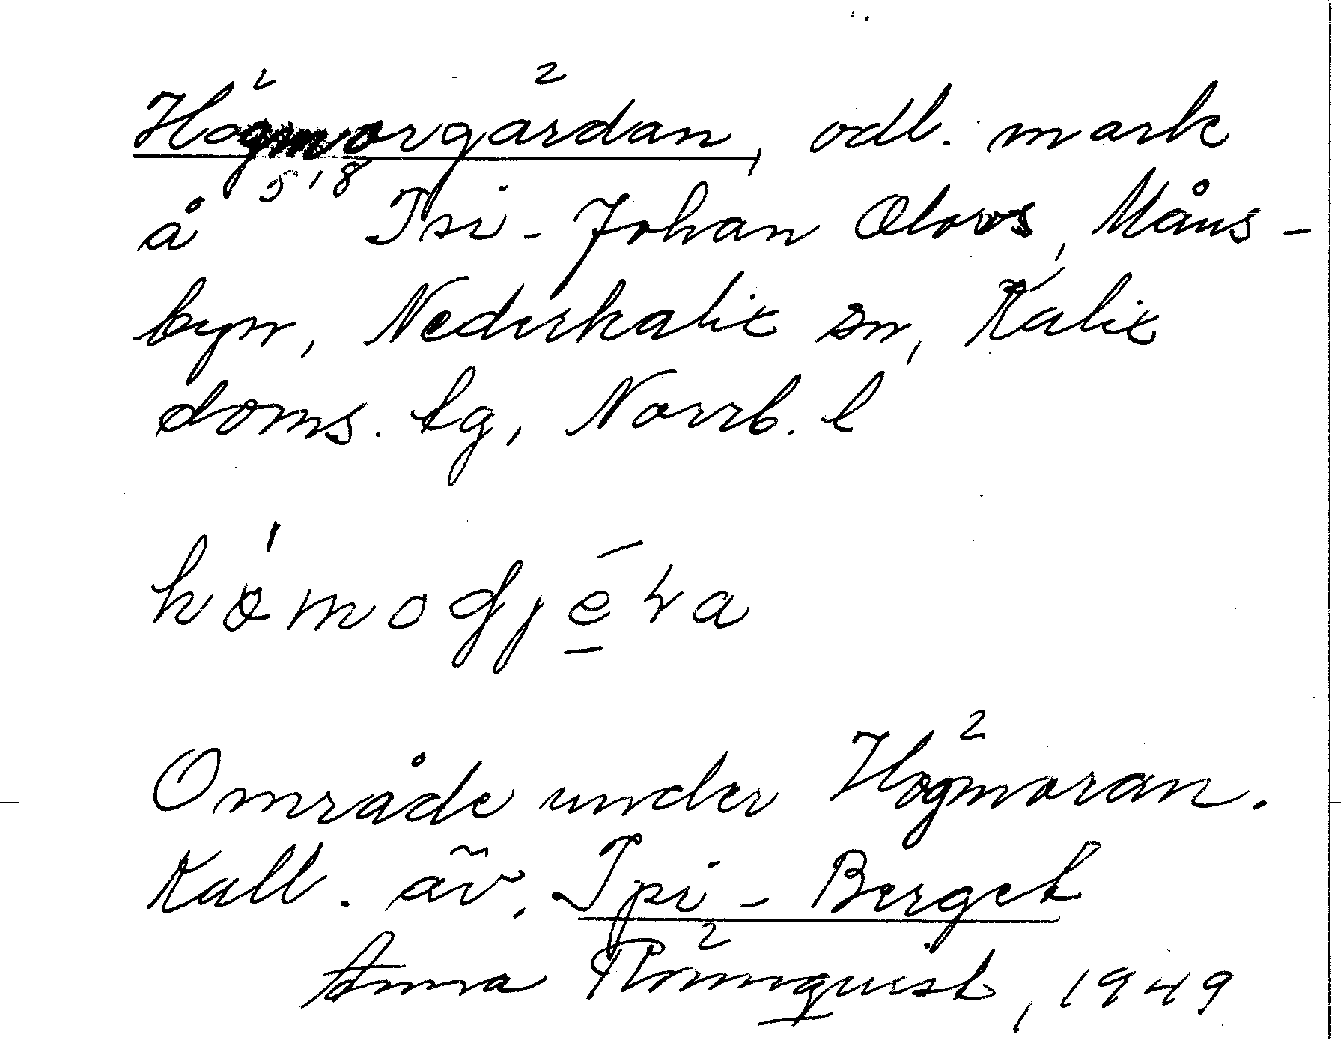 Högmorgärdan, odl. mark
å 5:18 Isi-Johan Olovs, Måns-
byn, Nederkalix sn, Kalix
doms. tg, Norrb. l
Område under Högmoran.
Kall. äv. Ipi-Berget
Anna Rönnquist, 1949